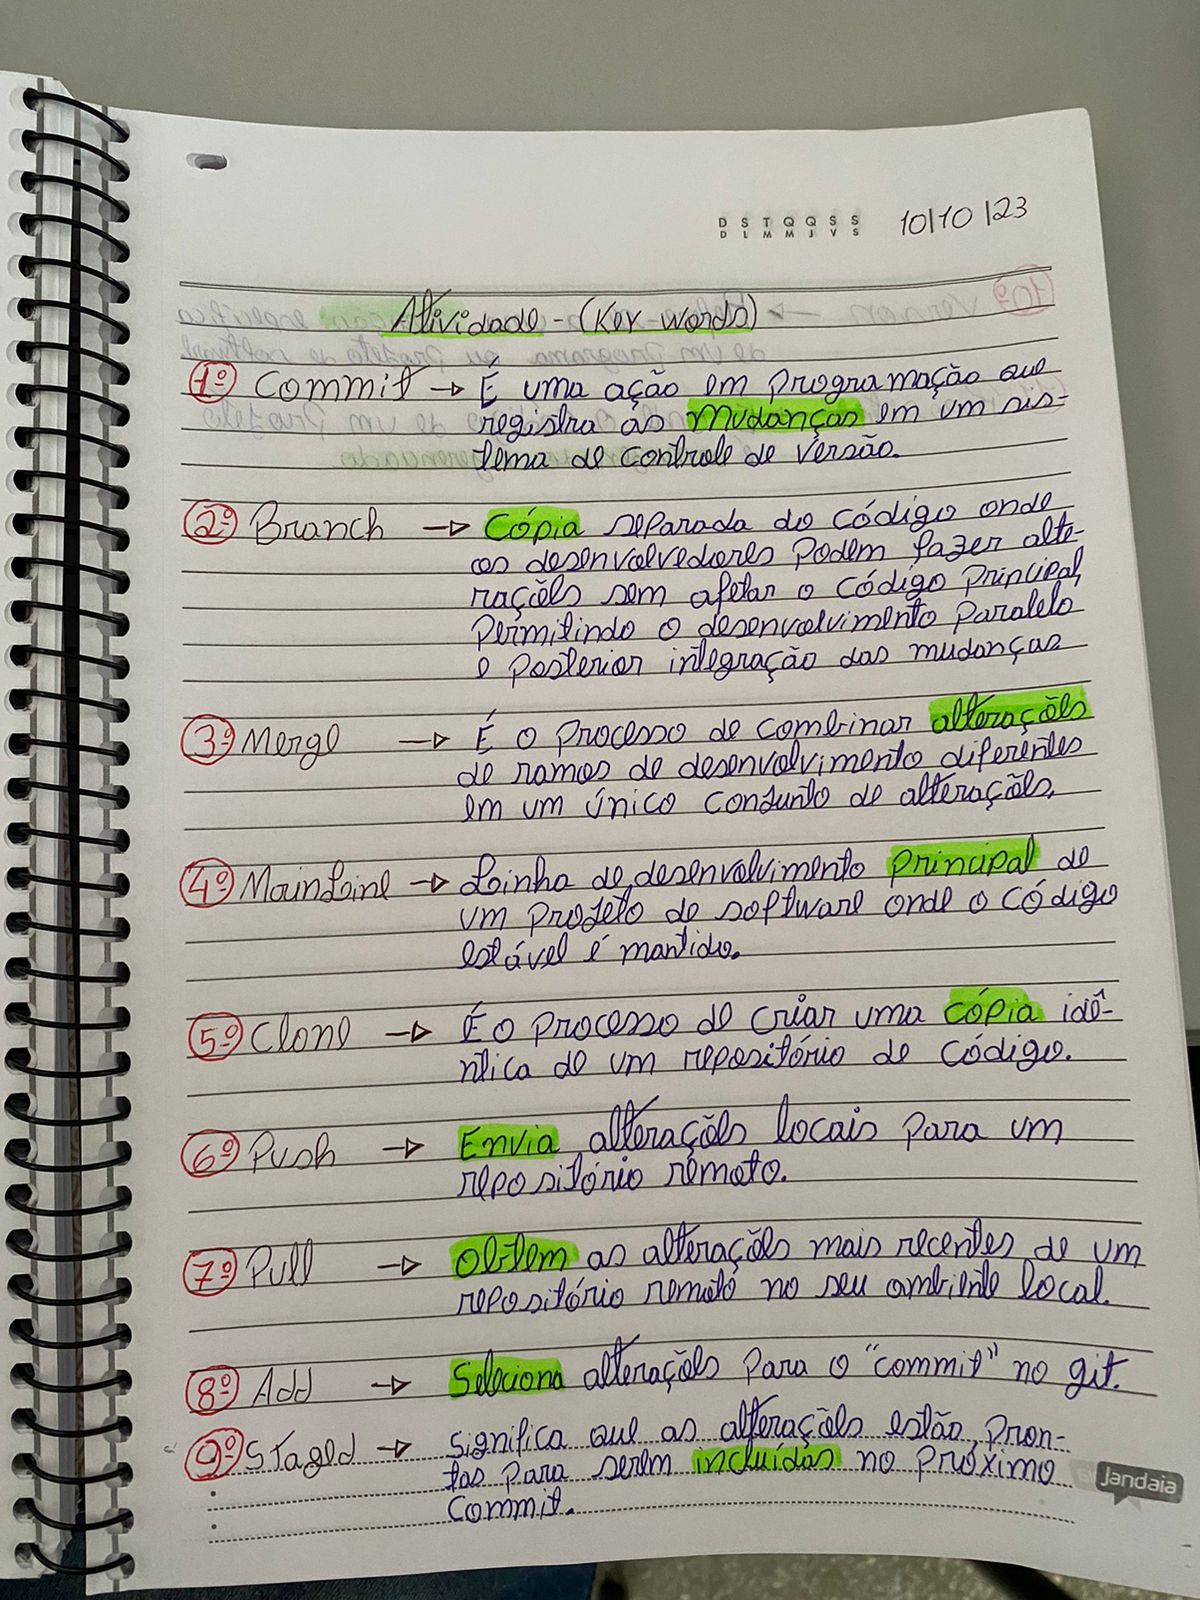 D S T Q Q S S
D L M M J V S
10/10/23
Atividade - (Key words)
1º Commit → É uma ação em programação que
registra as mudanças em um sis-
tema de controle de versão.
2º Branch → Cópia separada do código onde
os desenvolvedores podem fazer alte-
rações sem afetar o código principal,
permitindo o desenvolvimento paralelo
e posterior integração das mudanças
3º Merge → É o processo de combinar alterações
de ramos de desenvolvimento diferentes
em um único conjunto de alterações.
4º MainLine → Linha de desenvolvimento principal de
um projeto de software onde o código
estável é mantido.
5º Clone → É o processo de criar uma cópia idê-
ntica de um repositório de código.
6º Push → Envia alterações locais para um
repositório remoto.
7º Pull → Obtem as alterações mais recentes de um
repositório remoto no seu ambiente local.
8º Add → Seleciona alterações para o "commit" no git.
9º Staged → Significa que as alterações estão pron-
tas para serem incluídas no próximo
Commit.
Jandaia